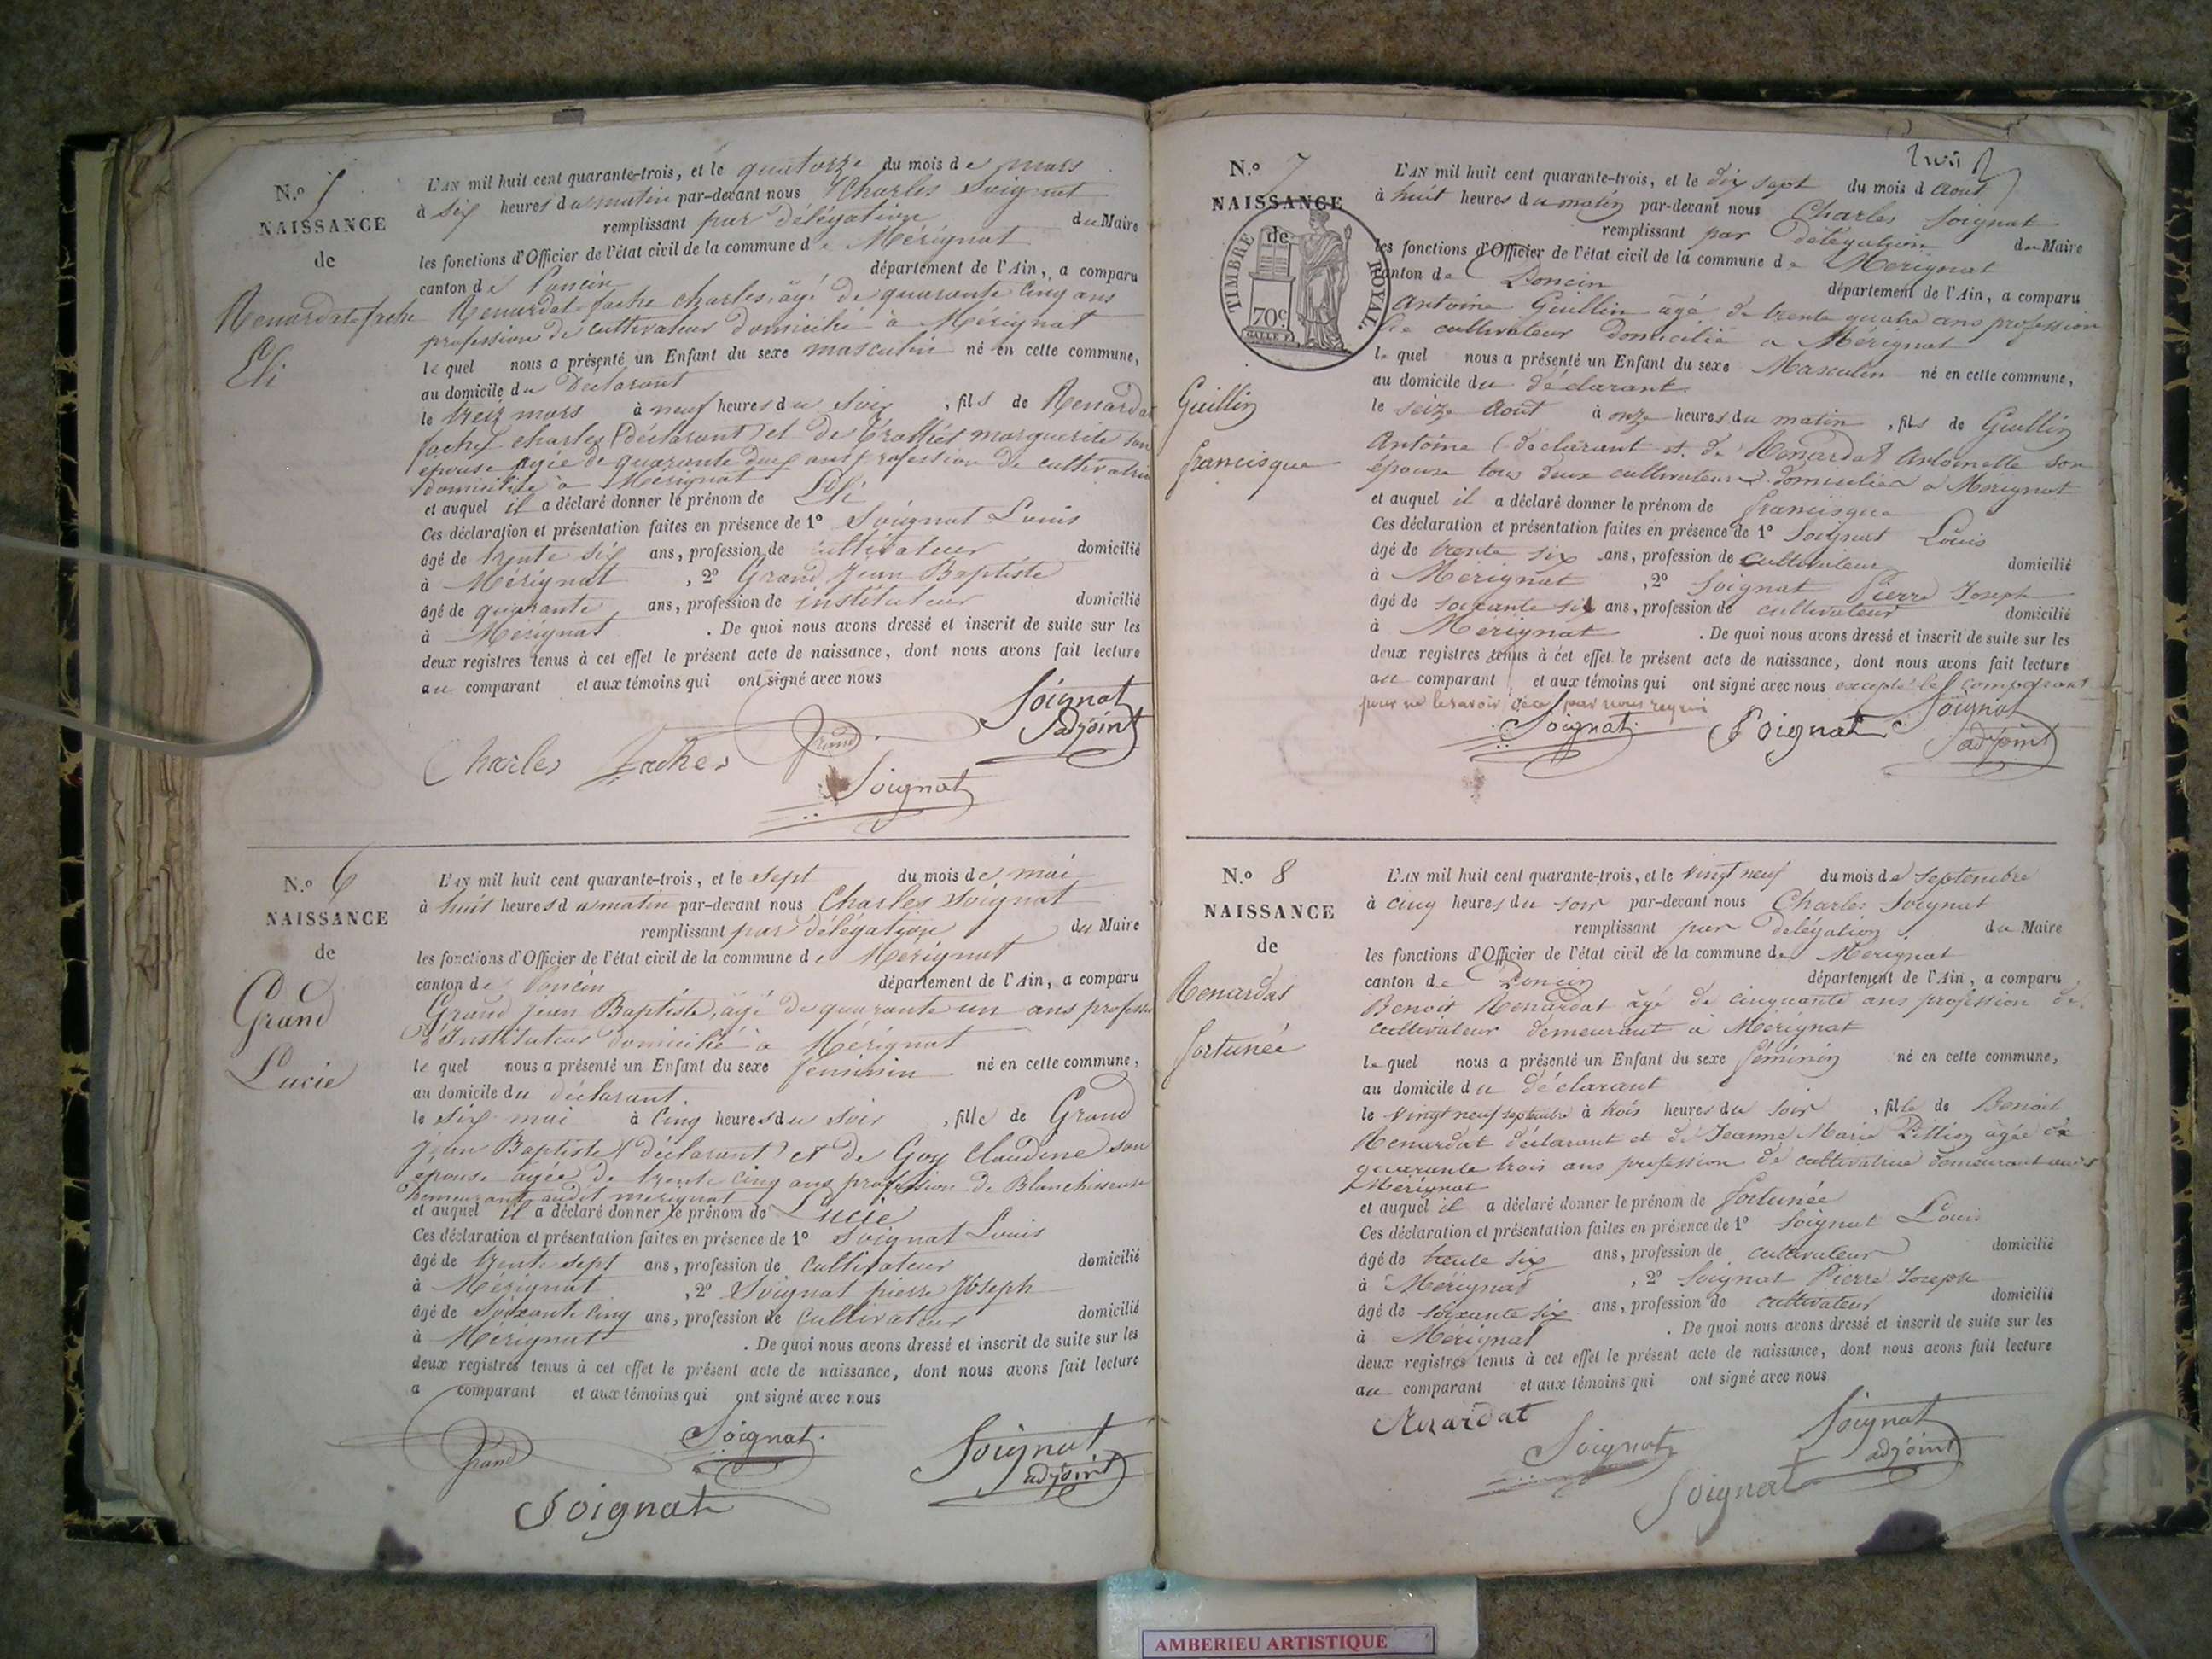 N.º 5
NAISSANCE
de
Renardat-fache
Eli
L'AN mil huit cent quarante-trois, et le quatorze du mois de mars
à six heures du matin par-devant nous Charles Soignat
remplissant par délégation du Maire
les fonctions d'Officier de l'état civil de la commune de Mérignat
canton de Poncin département de l'Ain, a comparu
Renardat-fache charles, âgé de quarante cinq ans
profession de cultivateur domicilié à Mérignat
le quel nous a présenté un Enfant du sexe masculin né en cette commune,
au domicile du Déclarant
le treize mars à neuf heures du soir, fils de Renardat
fache charles (déclarant) et de marguerite son
épouse agée de quarante deux ans profession de cultivatrice
domiciliée à Mérignat
et auquel il a déclaré donner le prénom de Eli
Ces déclaration et présentation faites en présence de 1º Soignat Louis
âgé de trente six ans, profession de cultivateur domicilié
à Mérignat, 2º Grand Jean Baptiste
âgé de quarante ans, profession de instituteur domicilié
à Mérignat. De quoi nous avons dressé et inscrit de suite sur les
deux registres tenus à cet effet le présent acte de naissance, dont nous avons fait lecture
au comparant et aux témoins qui ont signé avec nous
Soignat
adjoint
Charles Faches Grand
Soignat
N.º 6
NAISSANCE
de
Grand
Lucie
L'AN mil huit cent quarante-trois, et le sept du mois de mai
à huit heures du matin par-devant nous Charles Soignat
remplissant par délégation du Maire
les fonctions d'Officier de l'état civil de la commune de Mérignat
canton de Poncin département de l'Ain, a comparu
Grand Jean Baptiste, âgé de quarante un ans profession
d'Instituteur domicilié à Mérignat
le quel nous a présenté un Enfant du sexe féminin né en cette commune,
au domicile du déclarant.
le six mai à cinq heures du soir, fille de Grand
Jean Baptiste (déclarant) et de Goy Claudine son
épouse agée de trente cinq ans profession de Blanchisseuse
demeurant audit mérignat
et auquel il a déclaré donner le prénom de Lucie
Ces déclaration et présentation faites en présence de 1º Soignat Louis
âgé de trente sept ans, profession de cultivateur domicilié
à Mérignat, 2º Soignat pierre Joseph
âgé de Soixante cinq ans, profession de cultivateur domicilié
à Mérignat. De quoi nous avons dressé et inscrit de suite sur les
deux registres tenus à cet effet le présent acte de naissance, dont nous avons fait lecture
a comparant et aux témoins qui ont signé avec nous
Grand Soignat Soignat
adjoint
Soignat
N.º 7
NAISSANCE
de
TIMBRE ROYAL.
70c
Guillin
francisque
L'AN mil huit cent quarante-trois, et le dix sept du mois d'Aout
à huit heures du matin par-devant nous Charles Soignat
remplissant par délégation du Maire
les fonctions d'Officier de l'état civil de la commune de Mérignat
canton de Poncin département de l'Ain, a comparu
Antoine Guillin agé de trente quatre ans profession
de cultivateur domicilié a Mérignat
le quel nous a présenté un Enfant du sexe Masculin né en cette commune,
au domicile du déclarant
le seize Aout à onze heures du matin, fils de Guillin
Antoine (declarant et de Renardat Antoinette son
épouse tous deux cultivateurs domiciliés a Merignat
et auquel il a déclaré donner le prénom de francisque
Ces déclaration et présentation faites en présence de 1º Soignat Louis
âgé de trente six ans, profession de cultivateur domicilié
à Mérignat, 2º Soignat Pierre Joseph
âgé de soixante six ans, profession de cultivateur domicilié
à Mérignat. De quoi nous avons dressé et inscrit de suite sur les
deux registres tenus à cet effet le présent acte de naissance, dont nous avons fait lecture
au comparant et aux témoins qui ont signé avec nous excepté le comparant
pour ne le savoir de ce par nous requis
Soignat Soignat Soignat
adjoint
N.º 8
NAISSANCE
de
Renardat
fortunée
L'AN mil huit cent quarante-trois, et le vingt neuf du mois de septembre
à cinq heures du soir par-devant nous Charles Soignat
remplissant par délégation du Maire
les fonctions d'Officier de l'état civil de la commune de Mérignat
canton de Poncin département de l'Ain, a comparu
Benoit Renardat âgé de cinquante ans profession de
cultivateur demeurant à Mérignat
le quel nous a présenté un Enfant du sexe féminin né en cette commune,
au domicile du déclarant
le vingt neuf septembre à trois heures du soir, fille de Benoit
Renardat déclarant et de Jeanne Marie âgée de
quarante trois ans profession de cultivatrice demeurant audit
Mérignat
et auquel il a déclaré donner le prénom de fortunée
Ces déclaration et présentation faites en présence de 1º Soignat Louis
âgé de trente six ans, profession de cultivateur domicilié
à Mérignat, 2º Soignat Pierre Joseph
âgé de soixante six ans, profession de cultivateur domicilié
à Mérignat. De quoi nous avons dressé et inscrit de suite sur les
deux registres tenus à cet effet le présent acte de naissance, dont nous avons fait lecture
au comparant et aux témoins qui ont signé avec nous
Renardat Soignat Soignat
adjoint
Soignat
AMBERIEU ARTISTIQUE